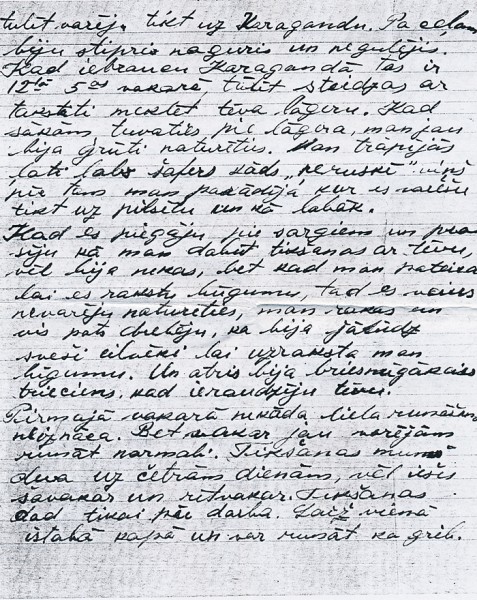 tulīt varēju tikt uz Karagandu. Pa ceļam
biju stipri noguris un negulējis.
Kad iebraucu Karagandā tas ir
12 5 vakarā, tūlīt steidzos ar
taksāti meklēt tēva lāgeru. Kad
sākām tuvoties pie lāgera, man jau
bija grūti naturēties. Man trāpījās
loti labs šofers kāds "neruskī" viņš
pie tam man parādīja kur es varēšu
tikt uz pilsētu un kā labāk.
Kad es piegāju pie sargiem un pra-
sīju kā man dabūt tikšanos ar tēvu,
vēl bija nekas, bet kad man pateica
lai es rakstu lūgumu, tad es vairs
nevarēju naturēties, man rokas un
vis pats drebēju, ka bija jālūdz
sveši cilvēki lai uzraksta man
lūgumu. Un otrs bija briesmīgākais
trieciens, kad ieraudzīju tēvu.
Pirmajā vakarā nekāda liela runāšana
neiznāca. Bet vakar jau varējām
runāt normāli. Tikšanās mums
deva uz četrām dienām, vēl ir
šovakar un rītvakar. Tikšanās
dod tikai pēc darba. Laiž vienā
istabā kopā un var runāt ko grib.